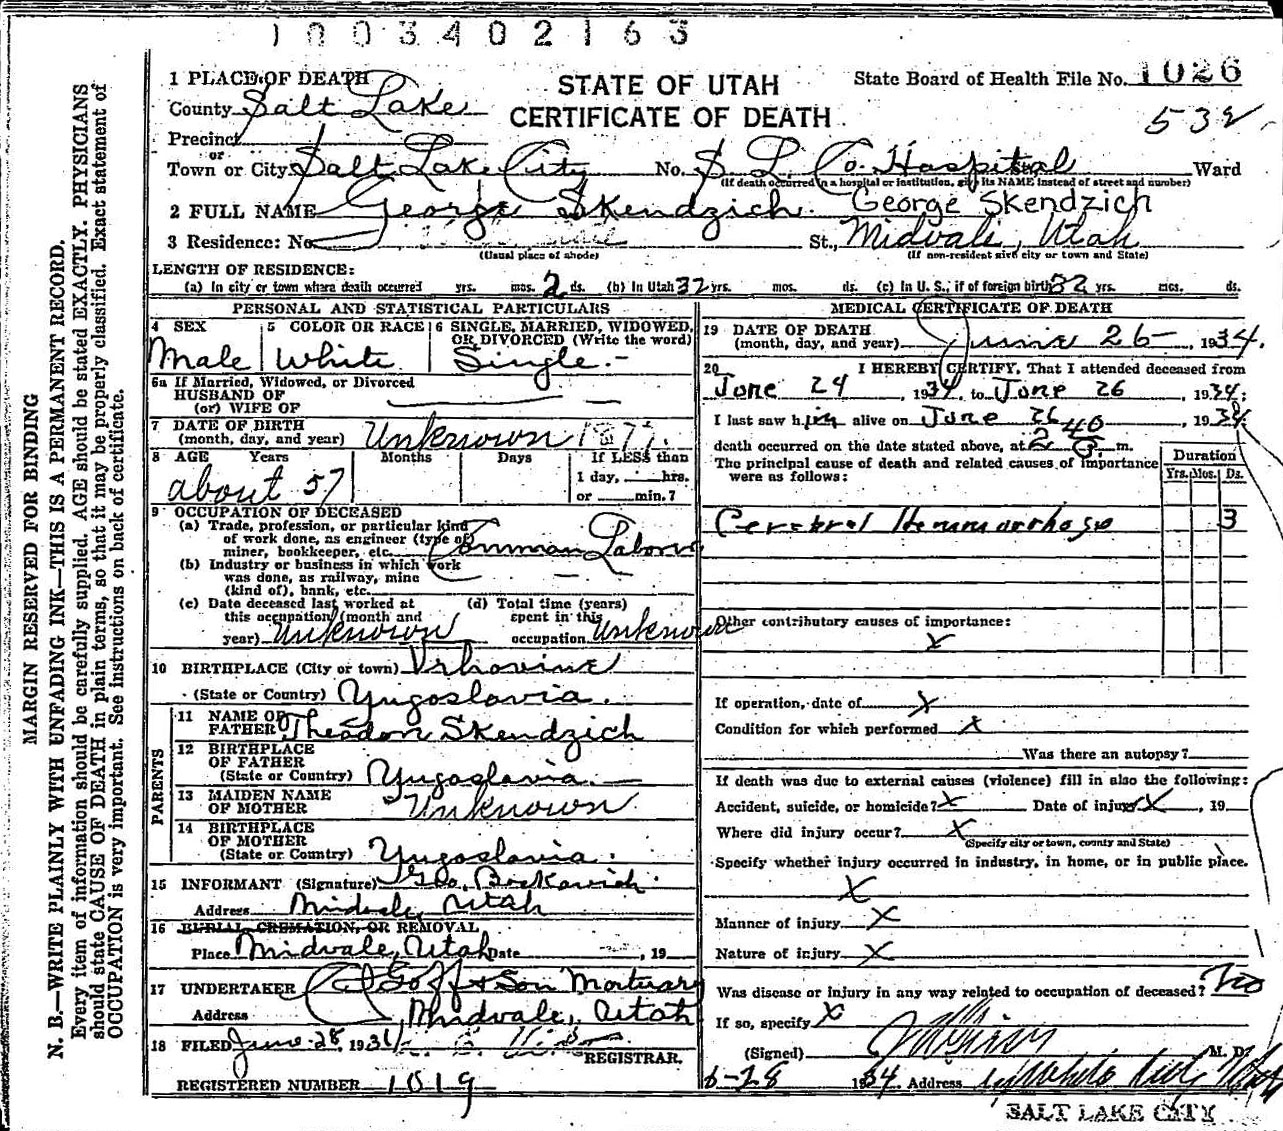 1003402163
1 PLACE OF DEATH
County Salt Lake
Precinct
or
Town or City Salt Lake City No. S. L. Co. Hospital St., Ward
(If death occurred in a hospital or institution, give its NAME instead of street and number)
STATE OF UTAH
CERTIFICATE OF DEATH
State Board of Health File No. 1026
532
2 FULL NAME George Skendzich. George Skendzich
3 Residence: No. St., Midvale, Utah
(Usual place of abode) (If non-resident give city or town and State)
LENGTH OF RESIDENCE:
(a) In city or town where death occurred yrs. mos. 2 ds. (b) In Utah 32 yrs. mos. ds. (c) In U. S., if of foreign birth 32 yrs. mos. ds.
PERSONAL AND STATISTICAL PARTICULARS
4 SEX 5 COLOR OR RACE 6 SINGLE, MARRIED, WIDOWED, OR DIVORCED (Write the word)
Male White Single.-
6a If Married, Widowed, or Divorced
HUSBAND OF
(or) WIFE OF
7 DATE OF BIRTH
(month, day, and year) Unknown 1877.
8 AGE Years Months Days If LESS than
1 day, hrs.
or min.?
about 57
9 OCCUPATION OF DECEASED
(a) Trade, profession, or particular kind
of work done, as engineer (type of)
miner, bookkeeper, etc. Common Labor
(b) Industry or business in which work
was done, as railway, mine
(kind of), bank, etc.
(c) Date deceased last worked at
this occupation (month and
year) Unknown
(d) Total time (years)
spent in this
occupation Unknown
10 BIRTHPLACE (City or town) Vrhovine
(State or Country) Yugoslavia.
PARENTS
11 NAME OF
FATHER Theodor Skendzich
12 BIRTHPLACE
OF FATHER
(State or Country) Yugoslavia.
13 MAIDEN NAME
OF MOTHER Unknown
14 BIRTHPLACE
OF MOTHER
(State or Country) Yugoslavia.
15 INFORMANT (Signature) Geo.
Address Midvale, Utah
16 BURIAL, CREMATION, OR REMOVAL
Place Midvale, Utah Date , 19
17 UNDERTAKER Goff & Son Mortuary
Address Midvale, Utah
18 FILED June 28, 193
REGISTRAR.
REGISTERED NUMBER 1019
MEDICAL CERTIFICATE OF DEATH
19 DATE OF DEATH
(month, day, and year) June 26-, 1934.
20 I HEREBY CERTIFY, That I attended deceased from
June 24, 1934, to June 26, 1934;
I last saw him alive on June 26, 1934
death occurred on the date stated above, at 2 40 m.
The principal cause of death and related causes of importance
were as follows:
Duration
Yrs. Mos. Ds.
Cerebral Hemmorrhage 3
Other contributory causes of importance:
x
If operation, date of x
Condition for which performed x
Was there an autopsy?
If death was due to external causes (violence) fill in also the following:
Accident, suicide, or homicide? x Date of injury x, 19
Where did injury occur? x
(Specify city or town, county and State)
Specify whether injury occurred in industry, in home, or in public place.
x
Manner of injury x
Nature of injury x
Was disease or injury in any way related to occupation of deceased? No
If so, specify x
(Signed) M. D.
6-28 1934. Address
SALT LAKE CITY
MARGIN RESERVED FOR BINDING
N. B.—WRITE PLAINLY WITH UNFADING INK—THIS IS A PERMANENT RECORD.
Every item of information should be carefully supplied. AGE should be stated EXACTLY. PHYSICIANS
should state CAUSE OF DEATH in plain terms, so that it may be properly classified. Exact statement of
OCCUPATION is very important. See instructions on back of certificate.